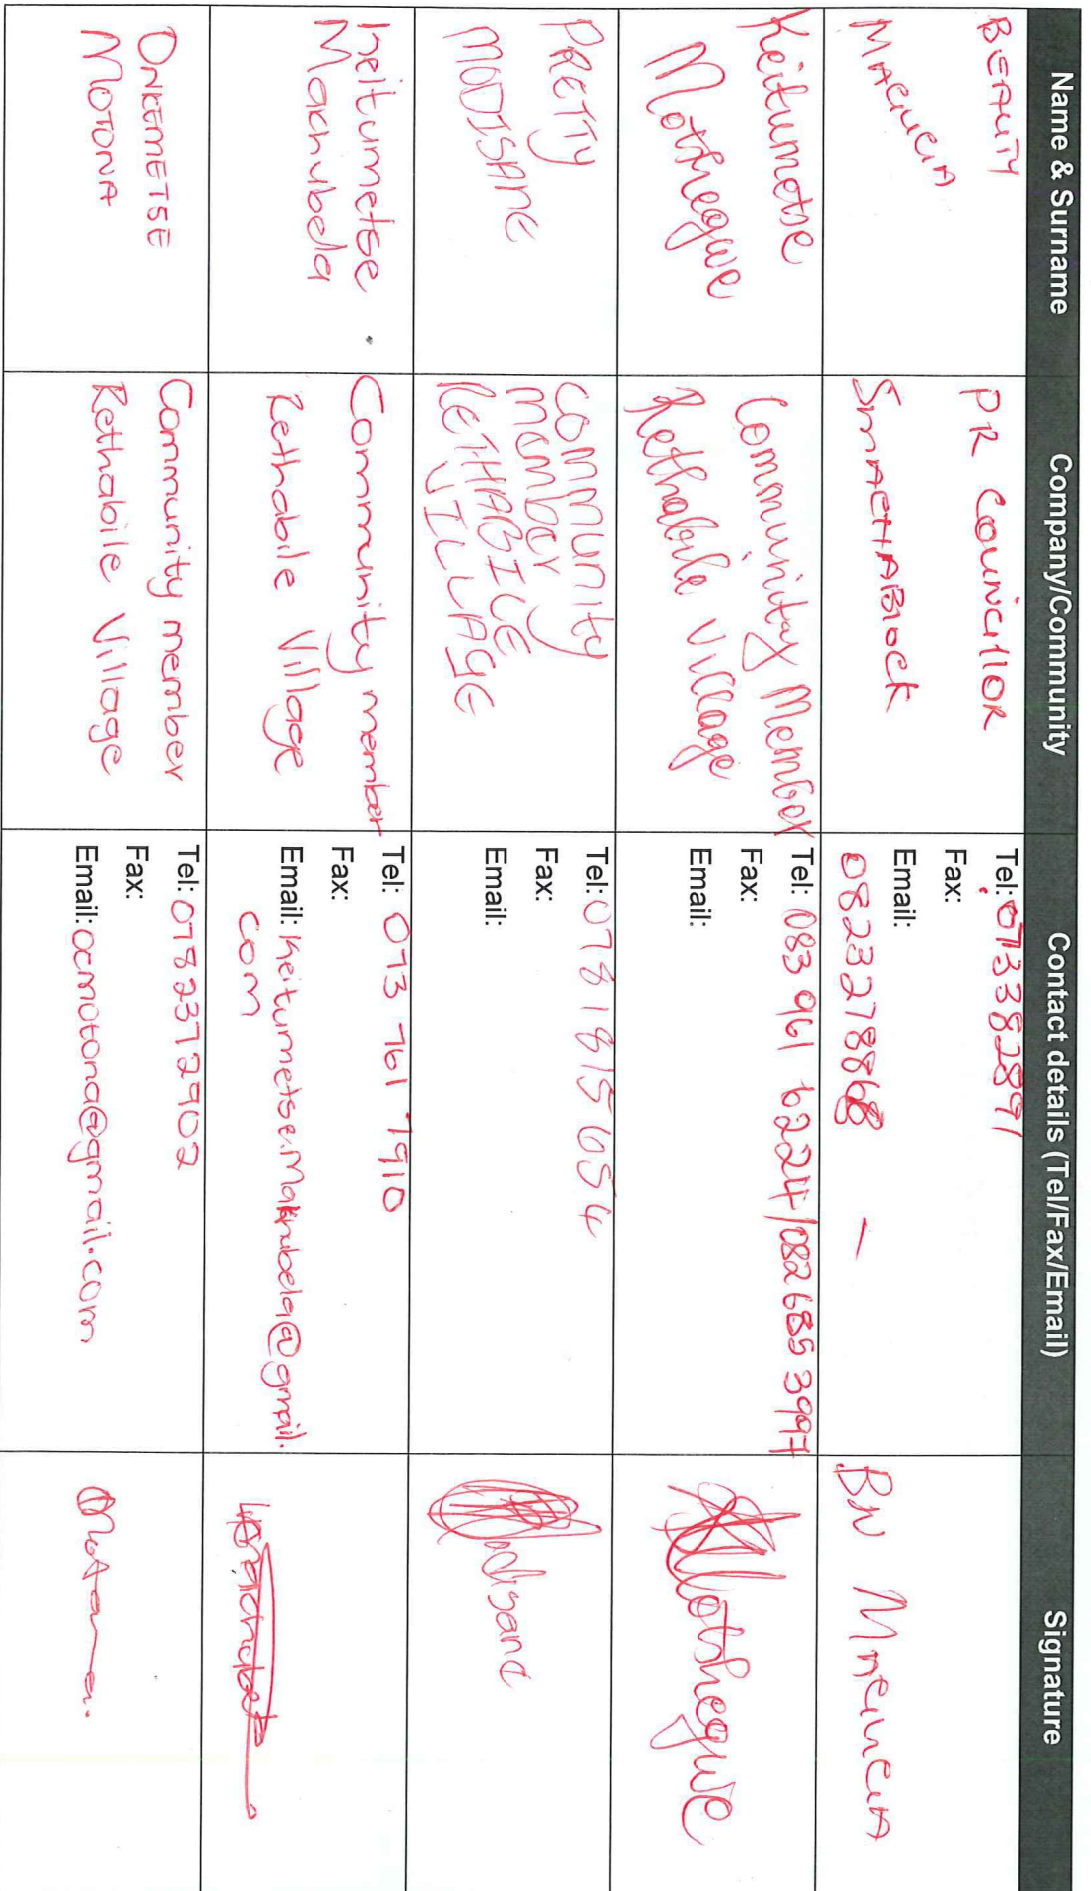 Name & Surname
Company/Community
Contact details (Tel/Fax/Email)
Signature
BEAUTY
PR COUNCILLOR
SMACHABLOCK
Tel: 0733828991
Fax:
Email:
0823278868 -
BN
Keitumetse
Motshegwe
Community Member
Rethabile Village
Tel: 083 961 6224/082 685 3997
Fax:
Email:
Motshegwe
PRETTY
MODISANE
COMMUNITY
member
RETHABILE
VILLAGE
Tel: 078 1815654
Fax:
Email:
Modisane
Keitumetse
Machubela
Community member
Rethabile Village
Tel: 073 761 7910
Fax:
Email: Keitumetse.Makhubela@gmail.
com
ONKEMETSE
MOTONA
Community member
Rethabile Village
Tel: 0782372902
Fax:
Email: ocmotona@gmail.com
Motona